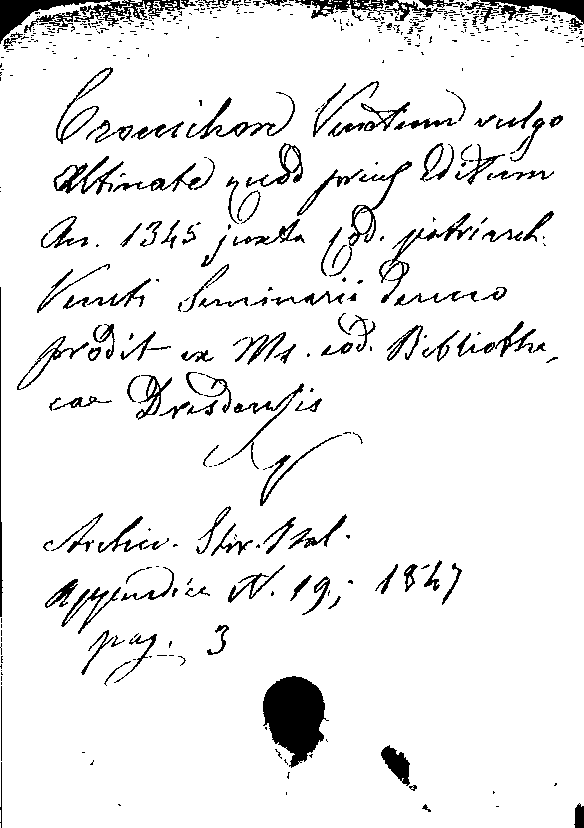 Cronikon Venetum vulgo
Altinate quod prius Editum
An. 1345 juxta cod. patriarch.
Veneti Seminarii denuo
prodit ex Ms. cod. Bibliothe,
cae Dresdensis
Archiv. Stor. Ital.
Appendice N. 19; 1847
pag. 3